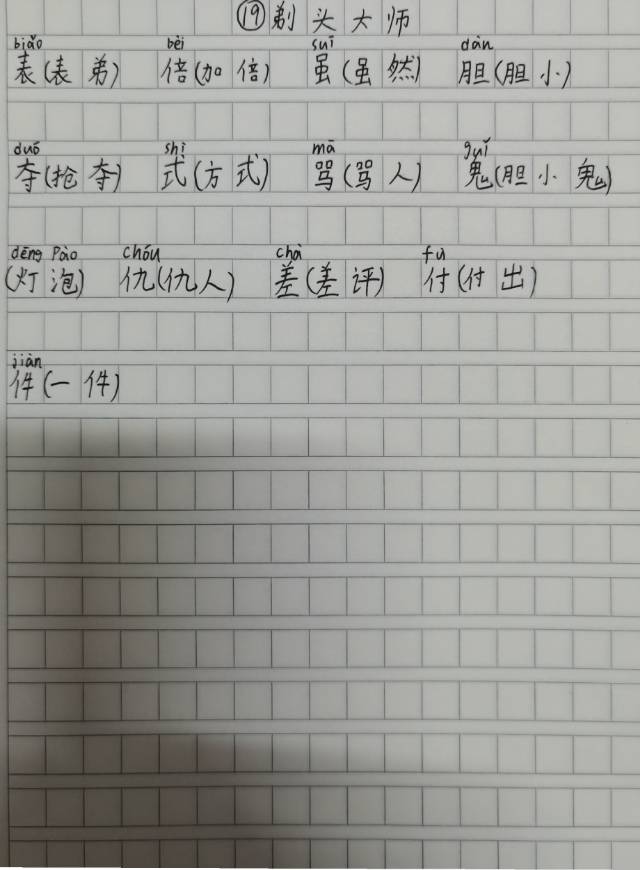 ⑲剃头大师
biǎo bèi suī dǎn
表(表弟) 倍(加倍) 虽(虽然) 胆(胆小)
duó shì mà guǐ
夺(抢夺) 式(方式) 骂(骂人) 鬼(胆小鬼)
dēng pào chóu chà fù
(灯泡) 仇(仇人) 差(差评) 付(付出)
jiàn
件(一件)